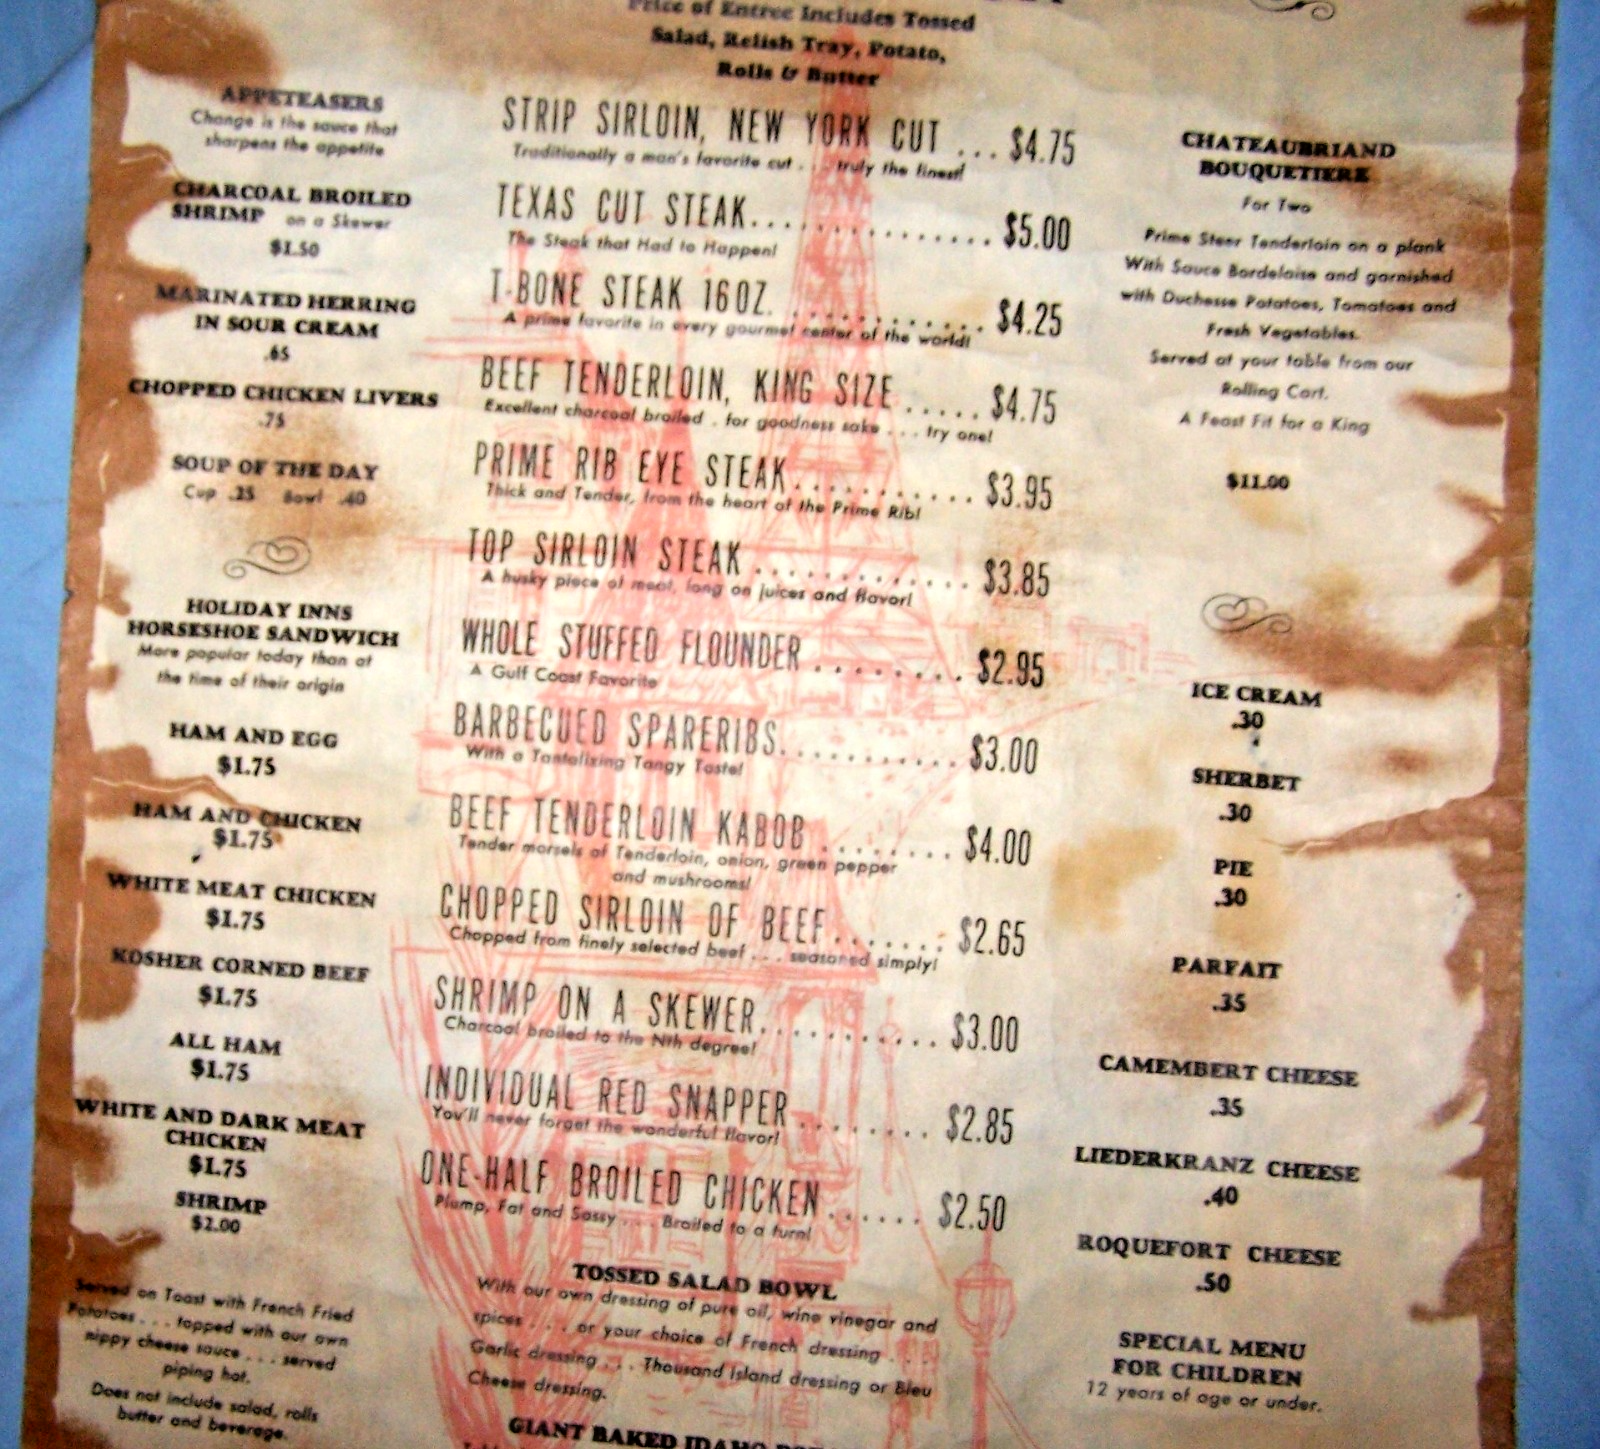 Price of Entree Includes Tossed
Salad, Relish Tray, Potato,
Rolls & Butter
APPETEASERS
Change is the sauce that
sharpens the appetite
CHARCOAL BROILED
SHRIMP on a Skewer
$1.50
MARINATED HERRING
IN SOUR CREAM
.65
CHOPPED CHICKEN LIVERS
.75
SOUP OF THE DAY
Cup .25 Bowl .40
HOLIDAY INNS
HORSESHOE SANDWICH
More popular today than at
the time of their origin
HAM AND EGG
$1.75
HAM AND CHICKEN
$1.75
WHITE MEAT CHICKEN
$1.75
KOSHER CORNED BEEF
$1.75
ALL HAM
$1.75
WHITE AND DARK MEAT
CHICKEN
$1.75
SHRIMP
$2.00
Served on Toast with French Fried
Potatoes . . . topped with our own
nippy cheese sauce . . . served
piping hot.
Does not include salad, rolls
butter and beverage.
STRIP SIRLOIN, NEW YORK CUT ... $4.75
Traditionally a man's favorite cut . . . truly the finest!
TEXAS CUT STEAK................ $5.00
The Steak that Had to Happen!
T-BONE STEAK 16 OZ. ............ $4.25
A prime favorite in every gourmet center of the world!
BEEF TENDERLOIN, KING SIZE ..... $4.75
Excellent charcoal broiled . for goodness sake . . . try one!
PRIME RIB EYE STEAK............ $3.95
Thick and Tender, from the heart of the Prime Rib!
TOP SIRLOIN STEAK ............. $3.85
A husky piece of meat, long on juices and flavor!
WHOLE STUFFED FLOUNDER ......... $2.95
A Gulf Coast Favorite
BARBECUED SPARERIBS............ $3.00
With a Tantalizing Tangy Taste!
BEEF TENDERLOIN KABOB ......... $4.00
Tender morsels of Tenderloin, onion, green pepper
and mushrooms!
CHOPPED SIRLOIN OF BEEF....... $2.65
Chopped from finely selected beef . . . seasoned simply!
SHRIMP ON A SKEWER............ $3.00
Charcoal broiled to the Nth degree!
INDIVIDUAL RED SNAPPER......... $2.85
You'll never forget the wonderful flavor!
ONE-HALF BROILED CHICKEN ...... $2.50
Plump, Fat and Sassy . . . Broiled to a turn!
TOSSED SALAD BOWL
With our own dressing of pure oil, wine vinegar and
spices . . . or your choice of French dressing . . .
Garlic dressing . . . Thousand Island dressing or Bleu
Cheese dressing.
GIANT BAKED IDAHO
CHATEAUBRIAND
BOUQUETIERE
For Two
Prime Steer Tenderloin on a plank
With Sauce Bordelaise and garnished
with Duchesse Potatoes, Tomatoes and
Fresh Vegetables.
Served at your table from our
Rolling Cart.
A Feast Fit for a King
$11.00
ICE CREAM
.30
SHERBET
.30
PIE
.30
PARFAIT
.35
CAMEMBERT CHEESE
.35
LIEDERKRANZ CHEESE
.40
ROQUEFORT CHEESE
.50
SPECIAL MENU
FOR CHILDREN
12 years of age or under.